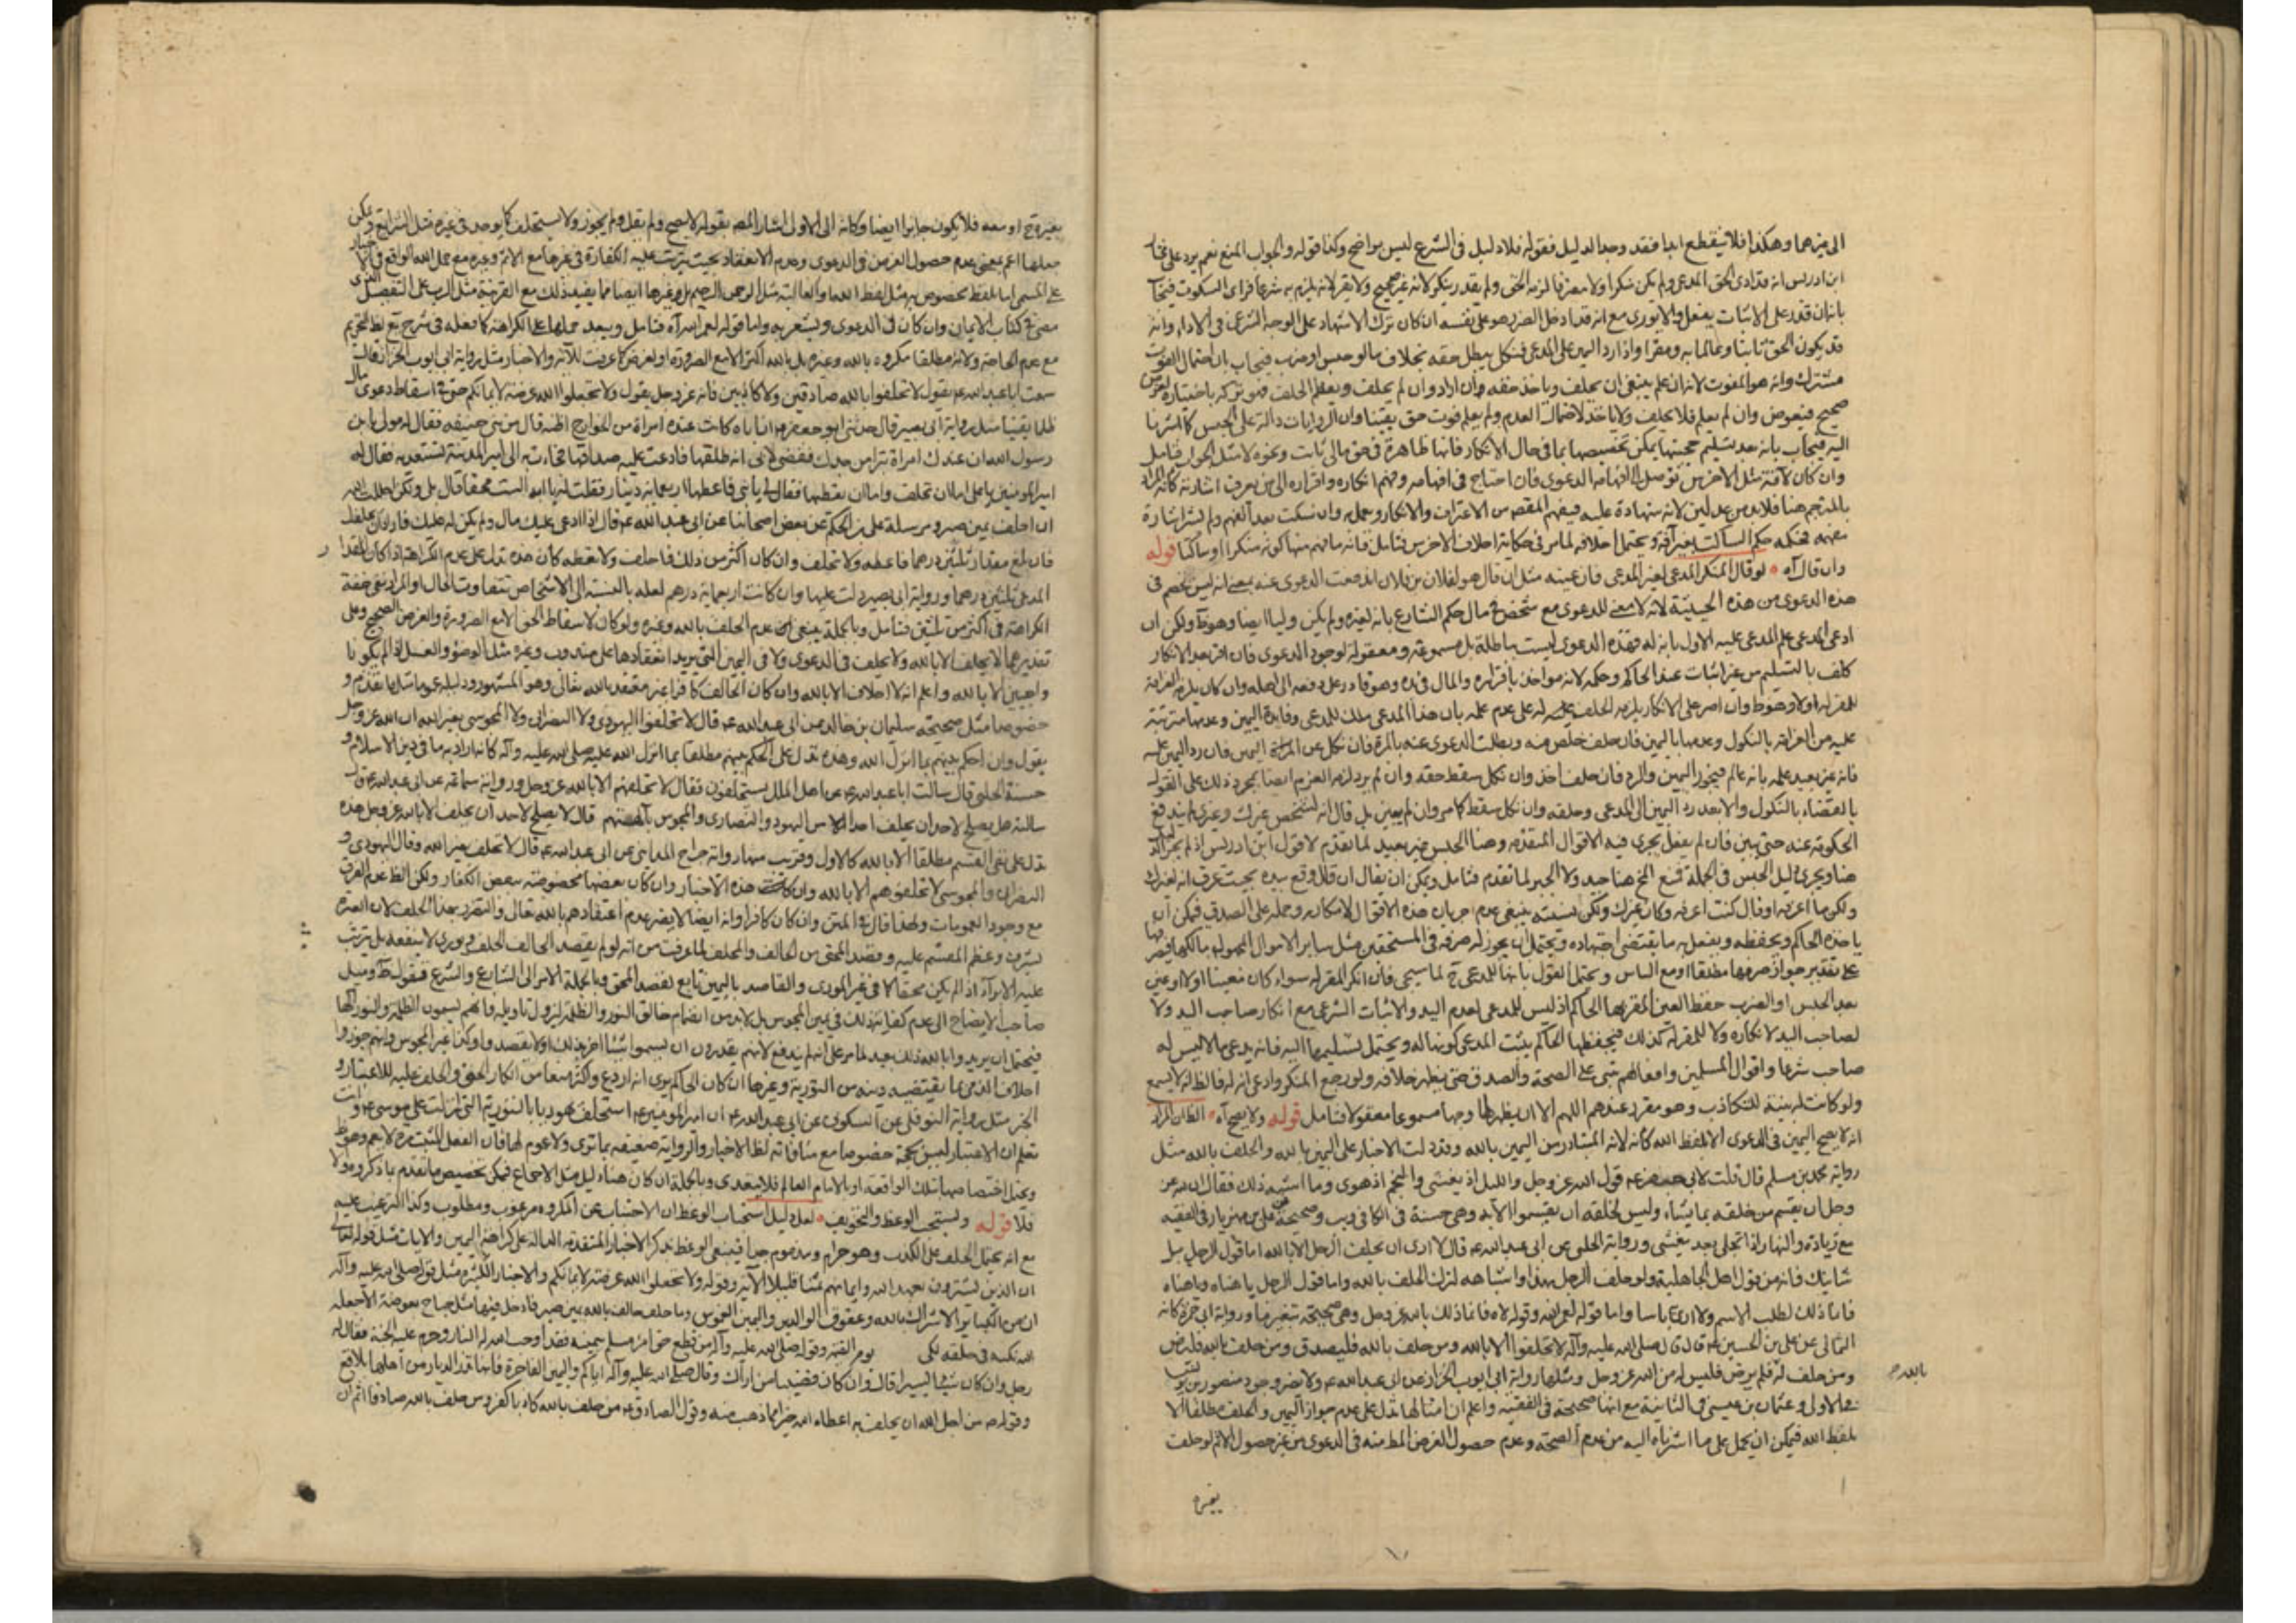 الى غيرهما وهكذا فلا ينقطع ابدا فقد وجد الدليل فقوله فلا دليل فى الشرع ليس بواضح وكذا قوله والجواب المنع نعم يرد على
ابن ادريس انه قد ادى الحق المدعى ولم يكن منكرا ولا معترفا لزمه الحق ولم يقدر ينكر لانه غير صحيح ولا يقر لانه يلزم به شرعا فراى السكوت
بانه ان قدر على الاثبات يفعل والا يورى مع انه قد ادخل الضرر هو على نفسه ان كان ترك الاشهاد على الوجه الشرعى فى الاداء وانه
قد يكون الحق ثابتا وعالما به ومقرا واذا رد اليمين على المدعى فنكل يبطل حقه بخلاف ما لو حبس او ضرب فيجاب بان احتمال الفوت
مشترك وانه هو المفوت لانه ان علم ينبغى ان يحلف وياخذ حقه وان اراد وان لم يحلف ويعظم الحلف فهو تركه باختياره لغرض
صحيح فيعوض وان لم يعلم فلا يحلف ولا ياخذ لاحتمال العدم ولم يعلم فوت حق يقينا وان الروايات دالة على الحبس كما اشرنا
اليه فيجاب بانه بعد تسليم حجيتها يمكن تخصيصها بما فى حال الانكار فانها ظاهرة فى حق مالى ثابت ونحوه لا مثل الجواب فتامل
وان كان لآفة مثل الاخرس توصل الى افهامه الدعوى فان احتاج فى افهامه وفهم انكاره واقراره الى من يعرف اشارته
بالمترجم هنا فلا بد من عدلين لانه شهادة عليه فيفهم المقصود من الاعتراف والانكار وعمل به وان سكت بعد الفهم ولم يشر اشارة
مفهمه فحكمه حكم الساكت بغير آفة ويحتمل احلافه لما مر فى حكاية احلاف الاخرس فتامل فانه ما فهم منها كونه منكرا او ساكتا قوله
وان قال آه لو قال المنكر المدعى لغير المدعى فان عينه مثل ان قال هو لفلان بن فلان اندفعت الدعوى عنه بمعنى انه ليس بخصم فى
هذه الدعوى من هذه الحيثية لانه لا معنى للدعوى مع شخص فى مال حكم الشارع بانه لغيره ولم يكن وليا ايضا وهو ظ ولكن ان
ادعى المدعى علم المدعى عليه الاول بانه له فهذه الدعوى ليست باطلة بل مسموعة ومعقولة لوجود الدعوى فان اقر بعد الانكار
كلف بالتسليم من غير اثبات عند الحاكم وحكمه لانه مواخذ باقراره والمال فى يده وهو قادر على دفعه الى اهله وان كان يلزمه الغرامة
للمقر له اولا وهو ظ وان اصر على الانكار يلزمه الحلف له على عدم علمه بان هذا المدعى ملك للمدعى وفايدة اليمين وعدمها مترتبة
عليه من الغرامة بالنكول وعدمها باليمين فان حلف خلص منه وبطلت الدعوى عنه بالمرة فان نكل عن اليمين فان رد اليمين عليه
فانه غير بعيد علمه بانه عالم فيجوز اليمين والرد فان حلف اخذ وان نكل سقط حقه وان لم يرد لزمه الغرم ايضا بمجرد ذلك على القول
بالقضاء بالنكول والا بعد رد اليمين الى المدعى وحلفه وان نكل سقط كما مر وان لم يعين بل قال انه لشخص غيرك وغيرى لم يندفع
الحكومة عنه حتى يبين فان لم يفعل يجرى فيه الاقوال المتقدمة وهنا الحبس غير بعيد لما تقدم لا قول ابن ادريس اذ لم يجر
هنا ويجرى دليل الحبس فى الجملة فمنع الخ هنا جيد ولا الجبر لما تقدم فتامل ويمكن ان يقال ان قال وقع بيدى بحيث عرف انه لغيرك
ولكن ما اعرفه او قال كنت اعرفه وكان غيرك ولكن نسيته ينبغى عدم جريان هذه الاقوال لامكانه وحمله على الصدق فيمكن ان
ياخذه الحاكم ويحفظه ويفعل به ما يقتضى اجتهاده ويحتمل ان يجوز له صرفه فى المستحقين مثل ساير الاموال المجهول مالكها
على تقدير جواز صرفها مطلقا او مع الياس ويحتمل القول بانها للمدعى ح لما سيجى فان انكر المقر له سواء كان معينا اولا او عين
بعد الحبس او الضرب حفظ العين المقر بها الحاكم اذ ليس للمدعى لعدم اليد والاثبات الشرعى مع انكار صاحب اليد ولا
لصاحب اليد لانكاره ولا للمقر له كذلك فيحفظها الحاكم يثبت المدعى كونها له ويحتمل تسليمها اليه فانه يدعى ما لا ليس له
صاحب شرعا واقوال المسلمين وافعالهم تبنى على الصحة والصدق حتى يظهر خلافه ولو رجع المنكر وادعى انه له فالظ انه لا يسمع
ولو كانت له بينة للتكاذب وهو مقرر عندهم اللهم الا ان يظهر لها وجها مسموعا معقولا فتامل قوله ولا يصح آه الظ ان المراد
انه لا يصح اليمين فى الدعوى الا بلفظ الله كانه لانه المتبادر من اليمين بالله وقد دلت الاخبار على اليمين بالله والحلف بالله مثل
رواية محمد بن مسلم قال قلت لابى جعفر ع قول الله عز وجل والليل اذا يغشى والنجم اذا هوى وما اشبه ذلك فقال ان لله عز
وجل ان يقسم من خلقه بما يشاء وليس لخلقه ان يقسموا الا به وهى حسنة فى الكافى ويب وصحيحة على بن مهزيار فى الفقيه
مع زيادة والنهار اذا تجلى بعد يغشى ورواية الحلبى عن ابى عبد الله ع قال لا ارى ان يحلف الرجل الا بالله اما قول الرجل بل
شانيك فانه من قول اهل الجاهلية ولو حلف الرجل بهذا واشباهه لترك الحلف بالله واما قول الرجل يا هناه ويا هناه
فانما ذلك لطلب الاسم ولا ارى باسا واما قوله لعمر الله وقوله لاه فانما ذلك بالله عز وجل وهى صحيحة بتغيير ما ورواية ابى حمزة كانه
الثمالى عن على بن الحسين ع قال قال صلى الله عليه وآله لا تحلفوا الا بالله ومن حلف بالله فليصدق ومن حلف بالله فليرض
ومن حلف له فلم يرض فليس له من الله عز وجل ومثلها رواية ابى ايوب الخزاز عن ابى عبد الله ع ولا يضر وجود منصور بن يونس
بالله
فى الاولى وعثمان بن عيسى فى الثانية مع انها صحيحة فى الفقيه واعلم ان امثالها تدل على عدم جواز اليمين والحلف مطلقا الا
بلفظ الله فيمكن ان يحمل على ما اشرناه اليه من عدم الصحة وعدم حصول الغرض المط منه فى الدعوى من غير حصول الاثم لو حلف
بغيره
بغيره ح او معه فلا يكون جايزا ايضا وكانه الى الاول اشار المصه بقوله لا يصح ولم يقل ولم يجوز ولا يستحلف كما يوجد فى غيره مثل الشرايع ويمكن
جعلها اعم بمعنى عدم حصول الغرض فى الدعوى وعدم الانعقاد بحيث يترتب عليه الكفارة فى غيرها مع الاثم وغيره مع حمل الله الواقع فى الاخبار
على المسمى اما بلفظ مخصوص به مثل لفظ الله او الغالبة مثل الرحمن الرحيم بل وغيرها ايضا مما يفيد ذلك مع القرينة مثل الرب على التفصيل الذى
مضى فى كتاب الايمان وان كان فى الدعوى ويشعر به واما قوله لعمر الله آه فتامل ويبعد حملها على الكراهة كما فعله فى شرح يع لظ التحريم
مع عدم الحاجة ولانه مطلقا مكروه بالله وغيره بل بالله اكثر الا مع الضرورة او لغرض كما عرفت للآية والاخبار مثل رواية ابى ايوب الخزاز قال
سمعت ابا عبد الله ع يقول لا تحلفوا بالله صادقين ولا كاذبين فانه عز وجل يقول ولا تجعلوا الله عرضة لايمانكم حتى فى اسقاط دعوى مال
ظلما يقينا مثل رواية ابى بصير قال حدثنى ابو جعفر ع ان اباه كانت عنده امراة من الخوارج اظنه قال من بنى حنيفة فقال له مولى يا بن
رسول الله ان عندك امراة تبرا من جدك فقضى لابى انه طلقها فادعت عليه صداقها فجاءت به الى امير المدينة تستعديه فقال له
امير المدينة يا على اما ان تحلف واما ان تعطيها فقال لى يا بنى فاعطها اربعماية دينار فقلت له يا ابه الست محقا قال بلى ولكنى اجللت الله
ان احلف يمين صبر ومرسلة على بن الحكم عن بعض اصحابنا عن ابى عبد الله ع قال اذا ادعى عليك مال ولم يكن له عليك فاراد ان يحلفك
فان بلغ مقدار ثلثين درهما فاعطه ولا تحلف وان كان اكثر من ذلك فاحلف ولا تعطه كان هذه تدل على عدم الكراهة اذا كان
المدعى ثلثين درهما ورواية ابى بصير دلت عليها وان كانت اربعماية درهم لعله بالنسبة الى الاشخاص تتفاوت الحال او المراد نفى خفة
الكراهة فى اكثر من ثلثين فتامل وبالجملة ينبغى عدم الحلف بالله وغيره ولو كان لاسقاط الحق الا مع الضرورة والغرض الصحيح وعلى
تقديرهما لا يحلف الا بالله ولا يحلف فى الدعوى ولا فى اليمين التى يريد انعقادها على مندوب وغيره مثل الوضوء والغسل اذا لم يكونا
واجبين الا بالله واعلم انه لا احلاف الا بالله وان كان الحالف كافرا غير معتقد بالله تعالى وهو المشهور ودليله عموم ما تقدم و
خصوصا مثل صحيحة سليمان بن خالد عن ابى عبد الله ع قال لا تحلفوا اليهودى ولا النصرانى ولا المجوسى بغير الله ان الله عز وجل
يقول وان احكم بينهم بما انزل الله وهذه تدل على الحكم بينهم مطلقا بما انزل الله عليه صلى الله عليه وآله كانه اراد به ما فى دين الاسلام و
حسنة الحلبى قال سالت ابا عبد الله ع عن اهل الملل يستحلفون فقال لا تحلفهم الا بالله عز وجل ورواية سماعة عن ابى عبد الله ع قال
سالته هل يصلح لاحد ان يحلف احدا من اليهود والنصارى والمجوس بآلهتهم قال لا يصلح لاحد ان يحلف الا بالله عز وجل هذه
تدل على نفى القسم مطلقا الا بالله كالاول وقريب منها رواية جراح المداينى عن ابى عبد الله ع قال لا يحلف بغير الله وقال اليهودى و
النصرانى والمجوسى لا تحلفوهم الا بالله وان كانت هذه الاخبار وان كان بعضها مخصوصة ببعض الكفار ولكن الظ عدم الفرق
مع وجود العمومات ولهذا قال فى المتن وان كان كافرا وانه ايضا لا يضر عدم اعتقادهم بالله تعالى والتفرد بهذا الحلف لان العبرة
بشرف وعظم المقسم عليه وقصد المحق من الحالف والمحلف لما عرفت من انه لو لم يقصد الحالف الحلف ويورى لا ينفعه بل يترتب
عليه الاثم آه اذا لم يكن محقا كما فى غير المورى والقاصد باليمين تابع لقصد المحق وبالجملة الامر الى الشارع والشرع فيقول ظ وميل
صاحب الايضاح الى عدم كفاية ذلك فى يمين المجوس بل لا بد من انضمام خالق النور والظلمة ليزول تاويله فانهم يسمون الظلمة والنور الها
فيحتمل ان يريدوا بالله ذلك بعيد لما مر على انه لم يندفع لانهم يقدرون ان يسموا شيئا آخر بذلك او لا يقصدوا وكذا غير المجوس وانهم جوزوا
احلاف الذمى بما يقتضيه دينه من التورية وغيرها ان كان الحاكم يرى انه اردع واكثر منعا من انكار الحق والحلف عليه للاعتبار و
الخبر مثل رواية النوفلى عن السكونى عن ابى عبد الله ع ان امير المؤمنين ع استحلف يهوديا بالتورية التى انزلت على موسى ع وانت
تعلم ان الاعتبار ليس بحجة خصوصا مع منافاته لظ الاخبار والرواية ضعيفة بما ترى ولا عموم لها فان الفعل المثبت لا يعم وهو ظ
ويحتمل اختصاصها بتلك الواقعة او بالامام العالم فلا يتعدى وبالجملة ان كان هناك دليل مثل الاجماع فيمكن تخصيص ما تقدم بما ذكروه والا
فلا قوله ويستحب الوعظ والتخويف لعل دليل استحباب الوعظ ان الاجتناب عن المكروه مرغوب ومطلوب وكذا الترغيب عليه
مع انه يحتمل الحلف على الكذب وهو حرام ومذموم جدا فينبغى الوعظ بذكر الاخبار المتقدمة الدالة على كراهة اليمين والايات مثل قوله تعالى
ان الذين يشترون بعهد الله وايمانهم ثمنا قليلا الآية وقوله ولا تجعلوا الله عرضة لايمانكم والاخبار الكثيرة مثل قوله صلى الله عليه وآله
ان من الكباير الاشراك بالله وعقوق الوالدين واليمين الغموس وما حلف حالف بالله يمين صبر فادخل فيها مثل جناح بعوضة الا جعله
الله نكتة فى قلبه الى يوم القيمة وقوله صلى الله عليه وآله من قطع حق امرئ مسلم بيمينه فقد اوجب الله له النار وحرم عليه الجنة فقال له
رجل وان كان شيئا يسيرا قال وان كان قضيبا من اراك وقال صلى الله عليه وآله اياكم واليمين الفاجرة فانها تدع الديار من اهلها بلاقع
وقوله ص من اجل الله ان يحلف به اعطاه الله خيرا مما ذهب منه وقول الصادق ع من حلف بالله كاذبا كفر ومن حلف بالله صادقا اثم ان